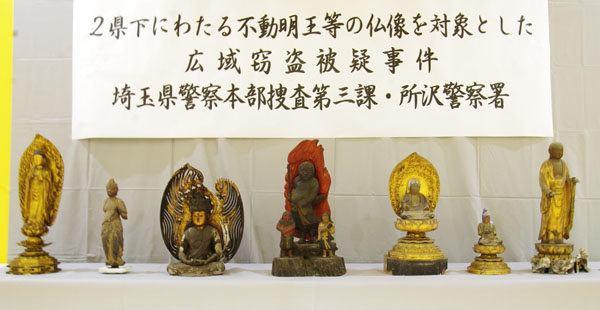 ２県下にわたる不動明王等の仏像を対象とした
広域窃盗被疑事件
埼玉県警察本部捜査第三課・所沢警察署